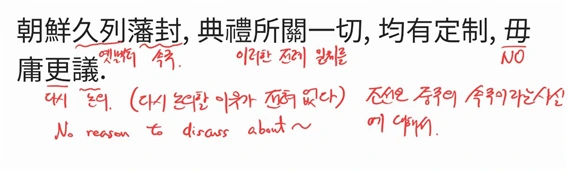 朝鮮久列藩封, 典禮所關一切, 均有定制, 毋
옛부터 속국. 이러한 전례 일체를 NO
庸更議.
다시 논의. (다시 논의할 이유가 전혀 없다) 조선은 중국의 속국이라는 사실
No reason to discuss about ~ 에 대해서.